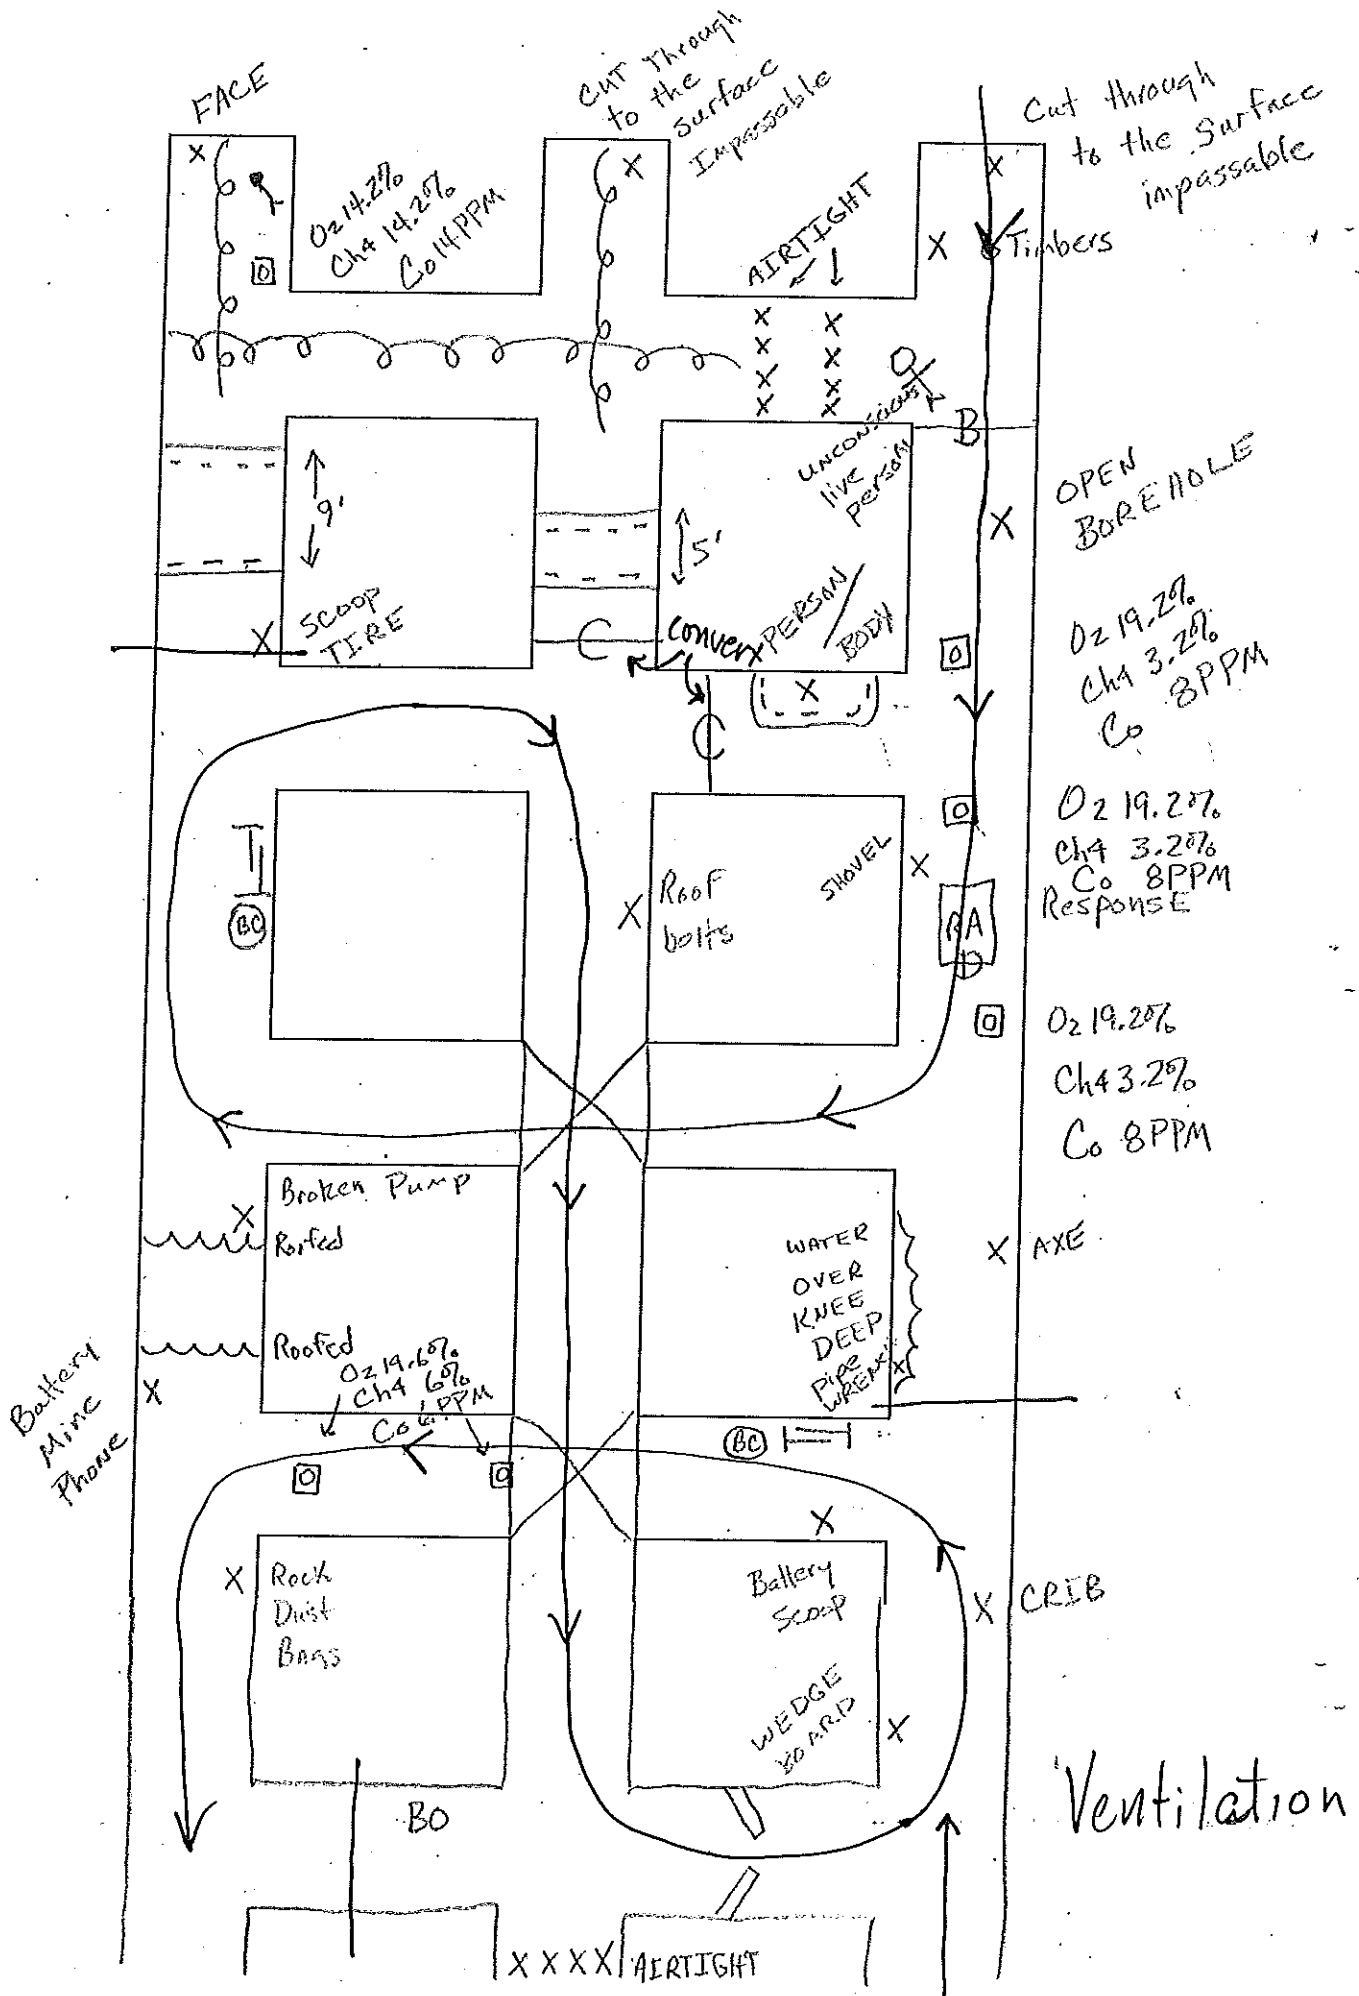 FACE
Cut Through
to the
surface
Impassable
Cut through
to the Surface
impassable
O2 14.2%
Ch4 14.2%
Co 14 PPM
AIRTIGHT
Timbers
X
X
X
X
X X
X X
X X
X X
UNCONSCIOUS
live
person
B
OPEN
BOREHOLE
X
9'
5'
SCOOP
TIRE
X
C
Conver
X PERSON/
BODY
X
C
O2 19.2%
Ch4 3.2%
Co 8PPM
O2 19.2%
Ch4 3.2%
Co 8PPM
Response
SHOVEL
X
Roof
bolts
X
BC
RA
O2 19.2%
Ch4 3.2%
Co 8PPM
Broken Pump
X
Roofed
WATER
OVER
KNEE
DEEP
Pipe
X
X AXE
Roofed
O2 19.6%
Ch4 6%
Co 6 PPM
Battery
Mine
Phone
X
BC
X
X Rock
Dust
Bags
Battery
Scoop
X CRIB
WEDGE
BOARD
X
Ventilation
BO
XXXX AIRTIGHT